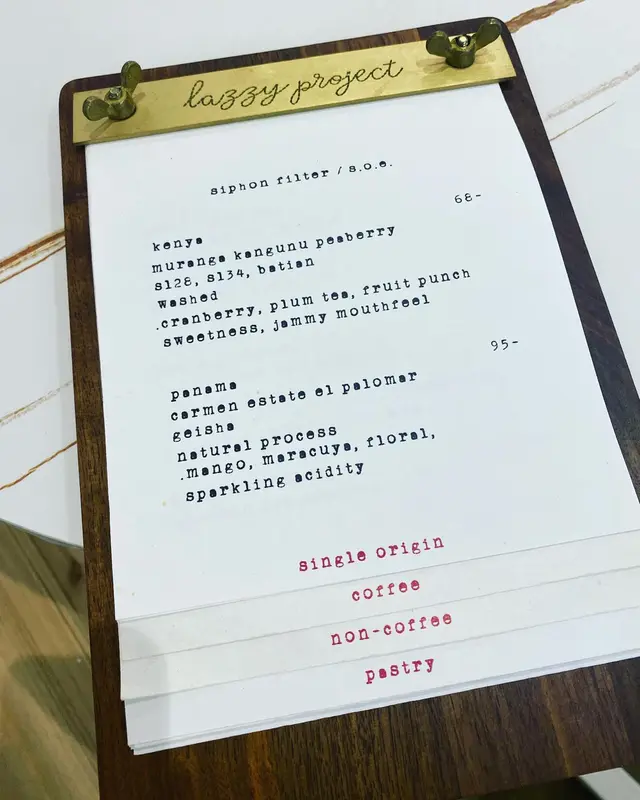 lazzy project
siphon filter / s.o.e.
68-
kenya
muranga kangunu peaberry
sl28, sl34, batian
washed
.cranberry, plum tea, fruit punch
sweetness, jammy mouthfeel
95-
panama
carmen estate el palomar
geisha
natural process
.mango, maracuya, floral,
sparkling acidity
single origin
coffee
non-coffee
pastry